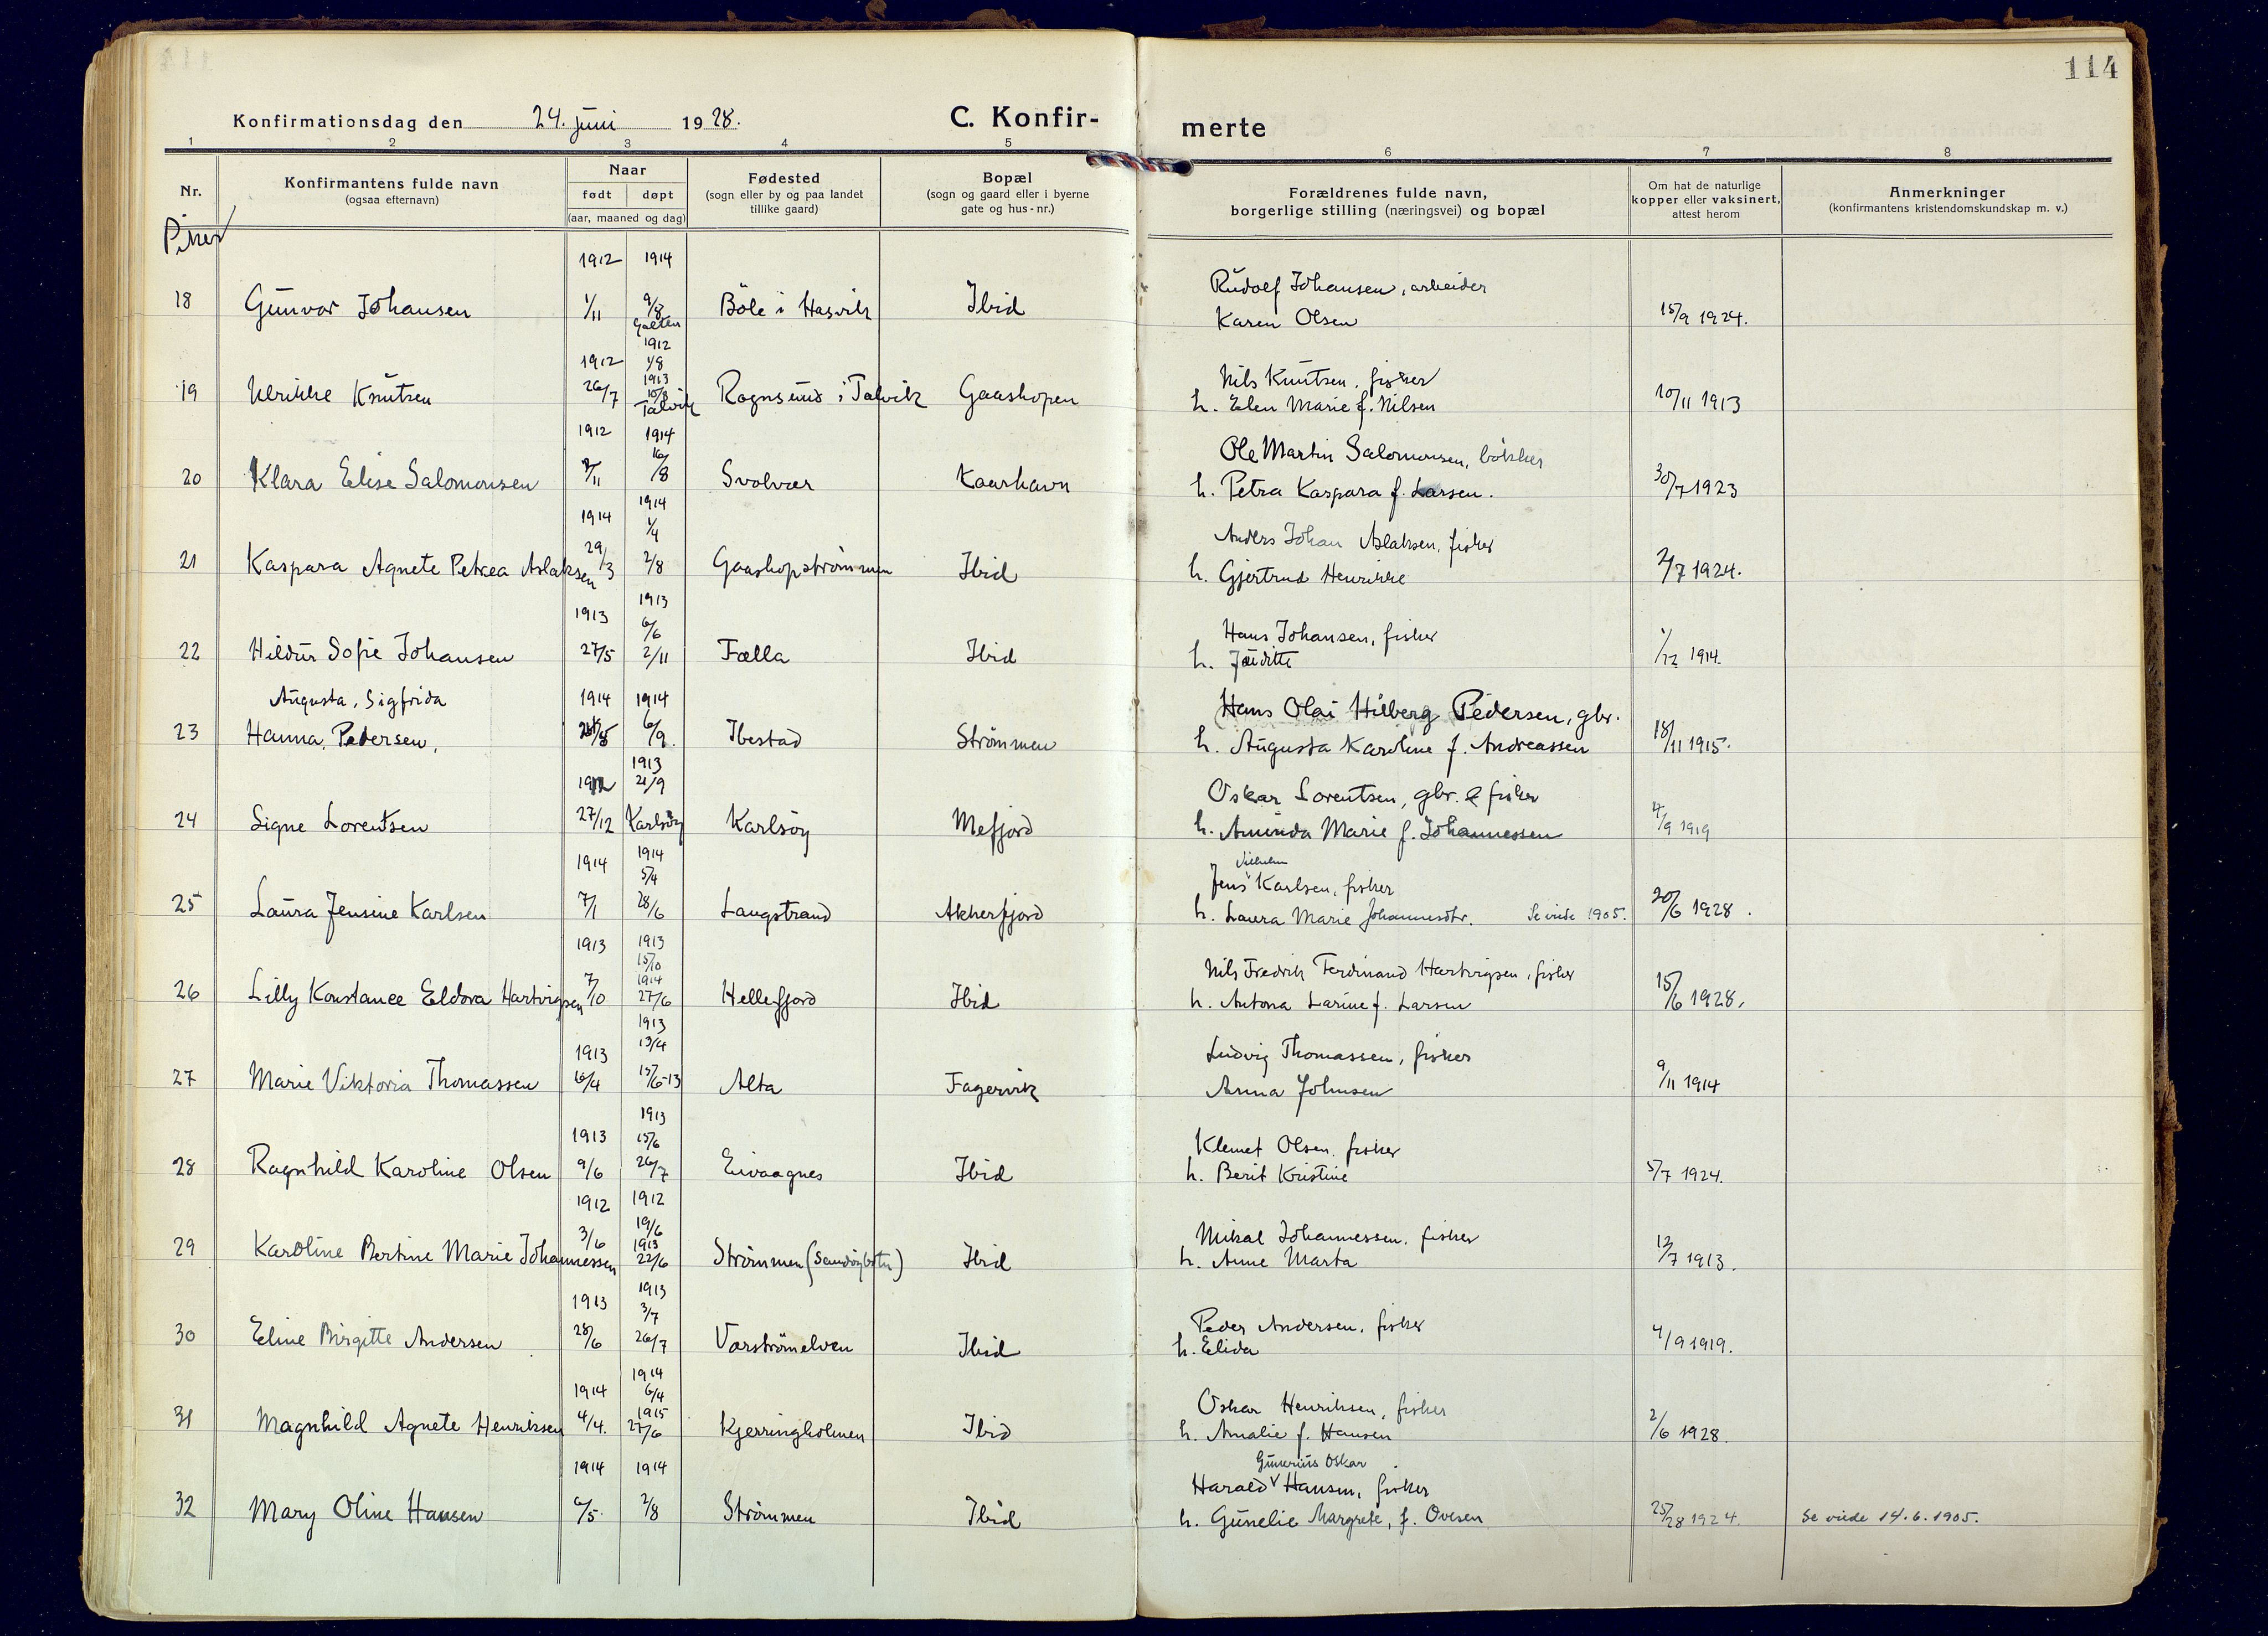 114
Konfirmationsdag den 24. juni 1928.
C. Konfir-
merte
1 2 3 4 5 6 7 8
Nr.
Konfirmantens fulde navn
(ogsaa efternavn)
Naar
født døpt
(aar, maaned og dag)
Fødested
(sogn eller by og paa landet
tillike gaard)
Bopæl
(sogn og gaard eller i byerne
gate og hus-nr.)
Forældrenes fulde navn,
borgerlige stilling (næringsvei) og bopæl
Om hat de naturlige
kopper eller vaksinert,
attest herom
Anmerkninger
(konfirmantens kristendomskundskap m. v.)
Piker
1912 1914
Rudolf Johansen, arbeider
18 Gunvor Johansen 1/11 9/8 Böle i Hasvik Ibid
Galten
Karen Olsen 15/9 1924.
1912
1912 1/8
1913
Nils Knutsen, fisker
19 Ulrikke Knutsen 26/7 10/8 Rognsund i Talvik Gaashopen
Talvik
h. Elen Marie f. Nilsen 10/11 1913
1912 1914
Ole Martin Salomonsen, bökker
20 Klara Elise Salomonsen /11 16/8 Svolvær Kaarhavn
h. Petra Kaspara f. Larsen. 30/7 1923
1914
1914 1/4
Anders Johan Aslaksen, fisker
21 Kaspara Agnete Petrea Aslaksen 29/3 2/8 Gaashopströmmen Ibid
h. Gjertrud Henrikke 2/7 1924.
1913
1913 6/6
Hans Johansen, fisker
22 Hildur Sofie Johansen 27/5 2/11 Fælla Ibid
h. Juditte 1/12 1914.
Augusta, Sigfrida 1914 1914
Hans Olai Hilberg Pedersen, gbr.
23 Hanna, Pedersen, /8 6/9. Ibestad Strömmen
h. Augusta Karoline f. Andreassen 18/11 1915.
1913
1912 21/9
Oskar Lorentsen, gbr. & fisker
24 Signe Lorentsen 27/12 Karlsöy Karlsöy Mefjord
h. Aminda Marie f. Johannessen 4/9 1919
1914
1914 5/4
Vilhelm
Jens Karlsen, fisker
25 Laura Jensine Karlsen 7/1 28/6 Langstrand Akkerfjord
h. Laura Marie Johannesdtr. Se viede 1905. 20/6 1928.
1913 1913
15/10
1914
Nils Fredrik Ferdinand Hartvigsen, fisker
26 Lilly Konstance Eldora Hartvigsen 7/10 27/6 Hellefjord Ibid
h. Antona Larine f. Larsen 15/6 1928.
1913
1913 13/4
Ludvig Thomassen, fisker
27 Marie Viktoria Thomassen 6/4 15/6-13 Alta Fagervik
Anna Johnsen 9/11 1914
1913
1913 15/6
Klemet Olsen, fisker
28 Ragnhild Karoline Olsen 9/6 26/7 Eivaagnes Ibid
h. Berit Kristine 5/7 1924.
1912 1912
19/6
1913
Mikal Johannessen, fisker
29 Karoline Bertine Marie Johannessen 3/6 22/6 Strömmen (Sandöybotn) Ibid
h. Anne Marta 12/7 1913.
1913
1913 3/7
Peder Andersen, fisker
30 Eline Birgitte Andersen 28/6 26/7 Varströmelven Ibid
h. Elida 4/9 1919.
1914
1914 6/4
1915
Oskar Henriksen, fisker
31 Magnhild Agnete Henriksen 4/4. 27/6 Kjerringholmen Ibid
h. Amalie f. Hansen 2/6 1928.
1914 1914
Gunerius Oskar
Harald Hansen, fisker
32 Mary Oline Hansen 6/5. 2/8 Strömmen Ibid
h. Gunelie Margrete, f. Ovesen 25/28 1924. Se viede 14.6.1905.